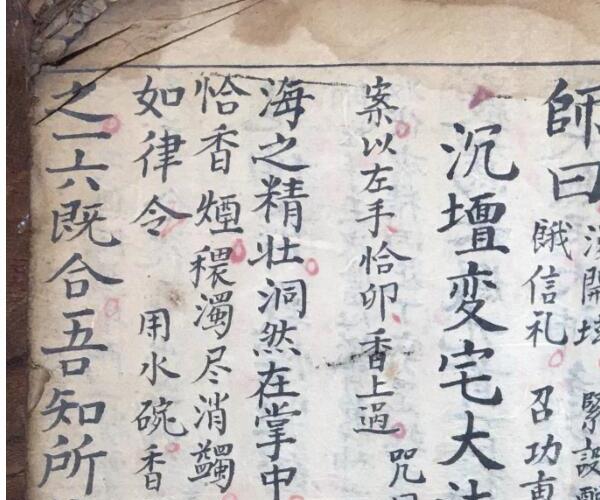 師曰
開 緊設
餓信礼 召功
沉壇変宅大
案以左手恰卯香上過 咒
海之精壮洞然在掌中
恰香煙穢濁尽消蠲
如律令 用水碗香
之一六既合吾知所